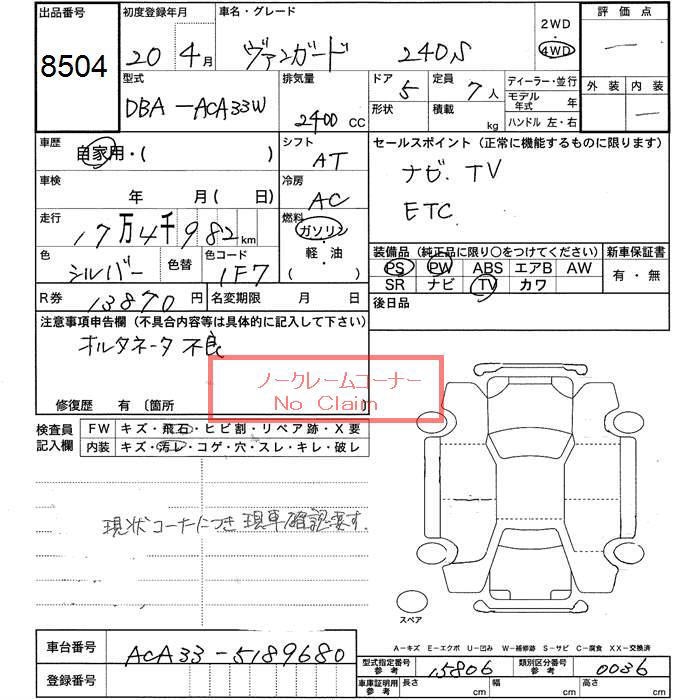 出品番号 初度登録年月 車名・グレード 2WD 評価点
8504 20 4月 ヴァンガード 240S 4WD ―
型式 排気量 ドア 定員 ディーラー・並行 外装 内装
DBA-ACA33W 2400 CC 5 7人 モデル年式 年 ―
形状 積載 kg ハンドル 左・右
車歴 自家用・( ) シフト AT セールスポイント(正常に機能するものに限ります)
ナビ. TV
車検 年 月( 日) 冷房 AC ETC
走行 17万4千982km 燃料 ガソリン
軽・油
( )
色 シルバー 色替 色コード 1F7
装備品(純正品に限り○をつけてください) 新車保証書
PS PW ABS エアB AW 有・無
SR ナビ TV カワ
R券 13870円 名変期限 月 日 後日品
注意事項申告欄(不具合内容等は具体的に記入して下さい)
オルタネータ 不良
ノークレームコーナー
No Claim
修復歴 有 〔箇所
検査員記入欄 FW キズ・飛石・ヒビ割・リペア跡・X要
内装 キズ・汚レ・コゲ・穴・スレ・キレ・破レ
現状コーナーにつき 現車確認要す.
スペア
A-キズ E-エクボ U-凹み W-補修跡 S-サビ C-腐食 XX-交換済
車台番号 ACA33-5189680
登録番号
型式指定番号 参考 15806 類別区分番号 参考 0036
車庫証明用 参考 長さ cm 幅 cm 高さ cm